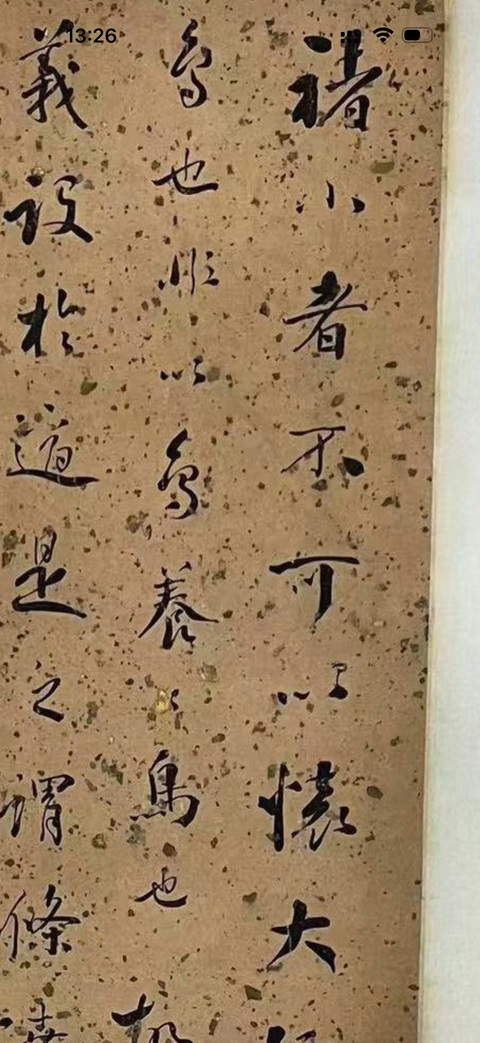 13:26
褚小者不可以懷大
鳥也非以鳥養〻鳥也
義設於適是之謂條